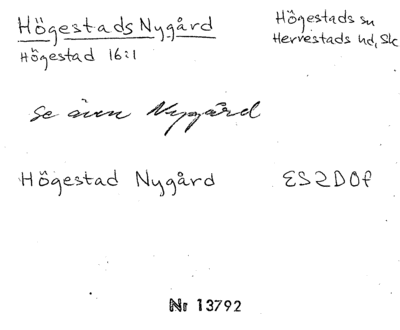 Högestads Nygård
Högestads sn
Herrestads hd, Sk
Högestad 16:1
Se även Nygård
Högestad Nygård
ES2D0f
Nr 13792